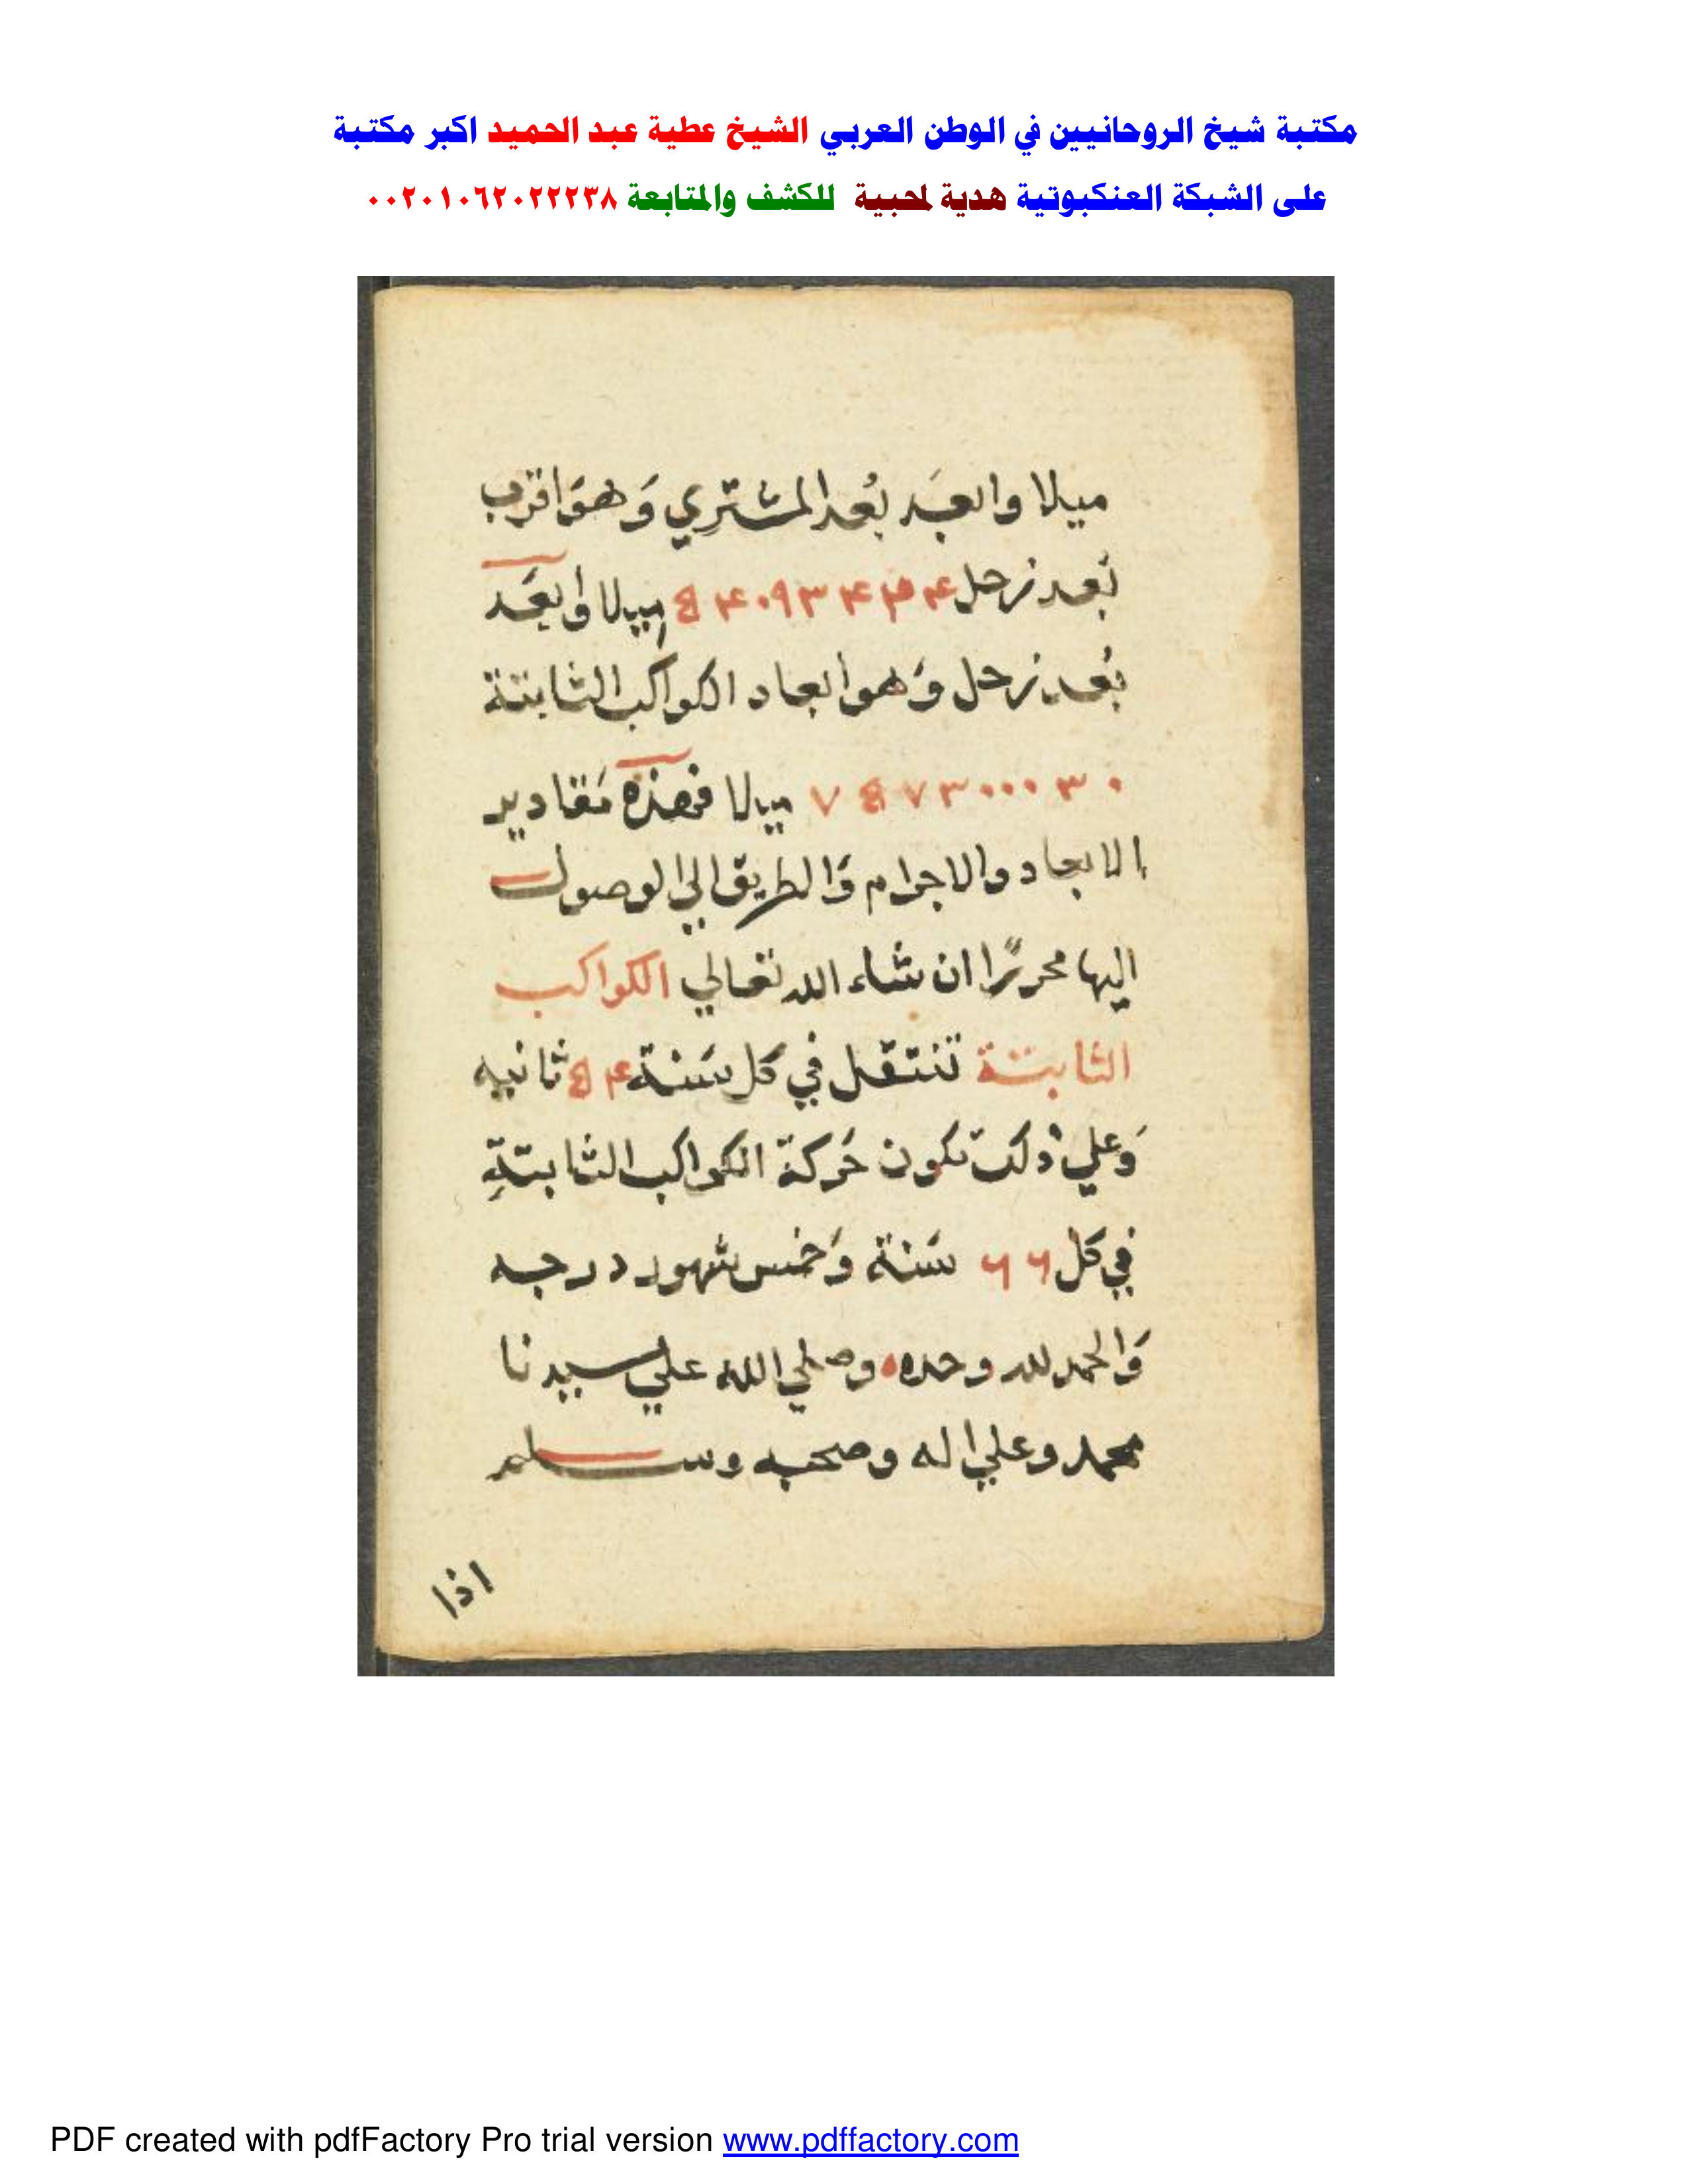 مكتبة شيخ الروحانيين في الوطن العربي الشيخ عطية عبد الحميد اكبر مكتبة
على الشبكة العنكبوتية هدية لمحبية للكشف والمتابعة ٠٠٢٠١٠٦٢٠٢٢٢٣٨
ميلا وابعَد بُعد المشتري وَهوَ اقرب
بُعد زحل ميلا وابعَد
بُعد زحل وَهوا بعاد الكواكب الثابتة
ميلا فهذه مَقادير
الابعاد والاجرام وَالطريق الي الوصول
اليها محررًا ان شاء الله تعالي الكواكب
الثابتة تنتقل في كل سَنة ثانيه
وَعلي ذلك تكون حَركة الكواكب الثابتةِ
في كل ٦٦ سَنة وَخمس شهور درجه
وَالحمد لله وحده وصلي الله علي سيدنا
محمد وعلي اله وصحبه وسلم
اذا
PDF created with pdfFactory Pro trial version www.pdffactory.com